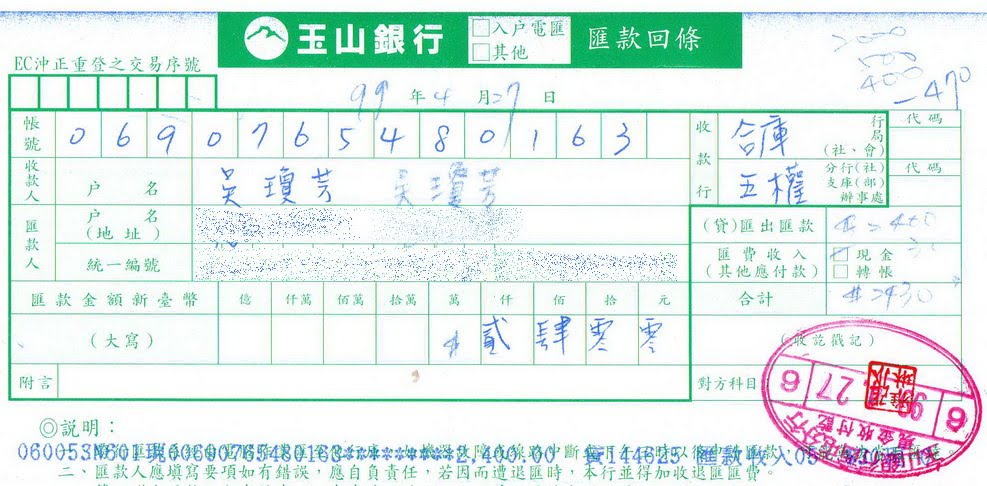 玉山銀行 □入戶電匯 □其他 匯款回條
2000
500
400
-470
EC沖正重登之交易序號
99 年 4 月 27 日
帳號 0 6 9 0 7 6 5 4 8 0 1 6 3 收款行 合庫 行局(社、會) 代碼
收款人 戶名 吳瓊芳 吳瓊芳 五權 分行(社)支庫(部)辦事處 代碼
匯款人 戶名(地址) (貸)匯出匯款 #2400
統一編號 匯費收入(其他應付款) □現金 □轉帳 30
匯款金額新臺幣 億 仟萬 佰萬 拾萬 萬 仟 佰 拾 元 合計 #2430
(大寫) # 貳 肆 零 零 (收訖戳記)
附言 對方科目
6 99. 4. 27 6
現金收付訖
◎說明：
二、匯款人應填寫要項如有錯誤，應自負責任，若因而遭退匯時，本行並得加收退匯匯費。